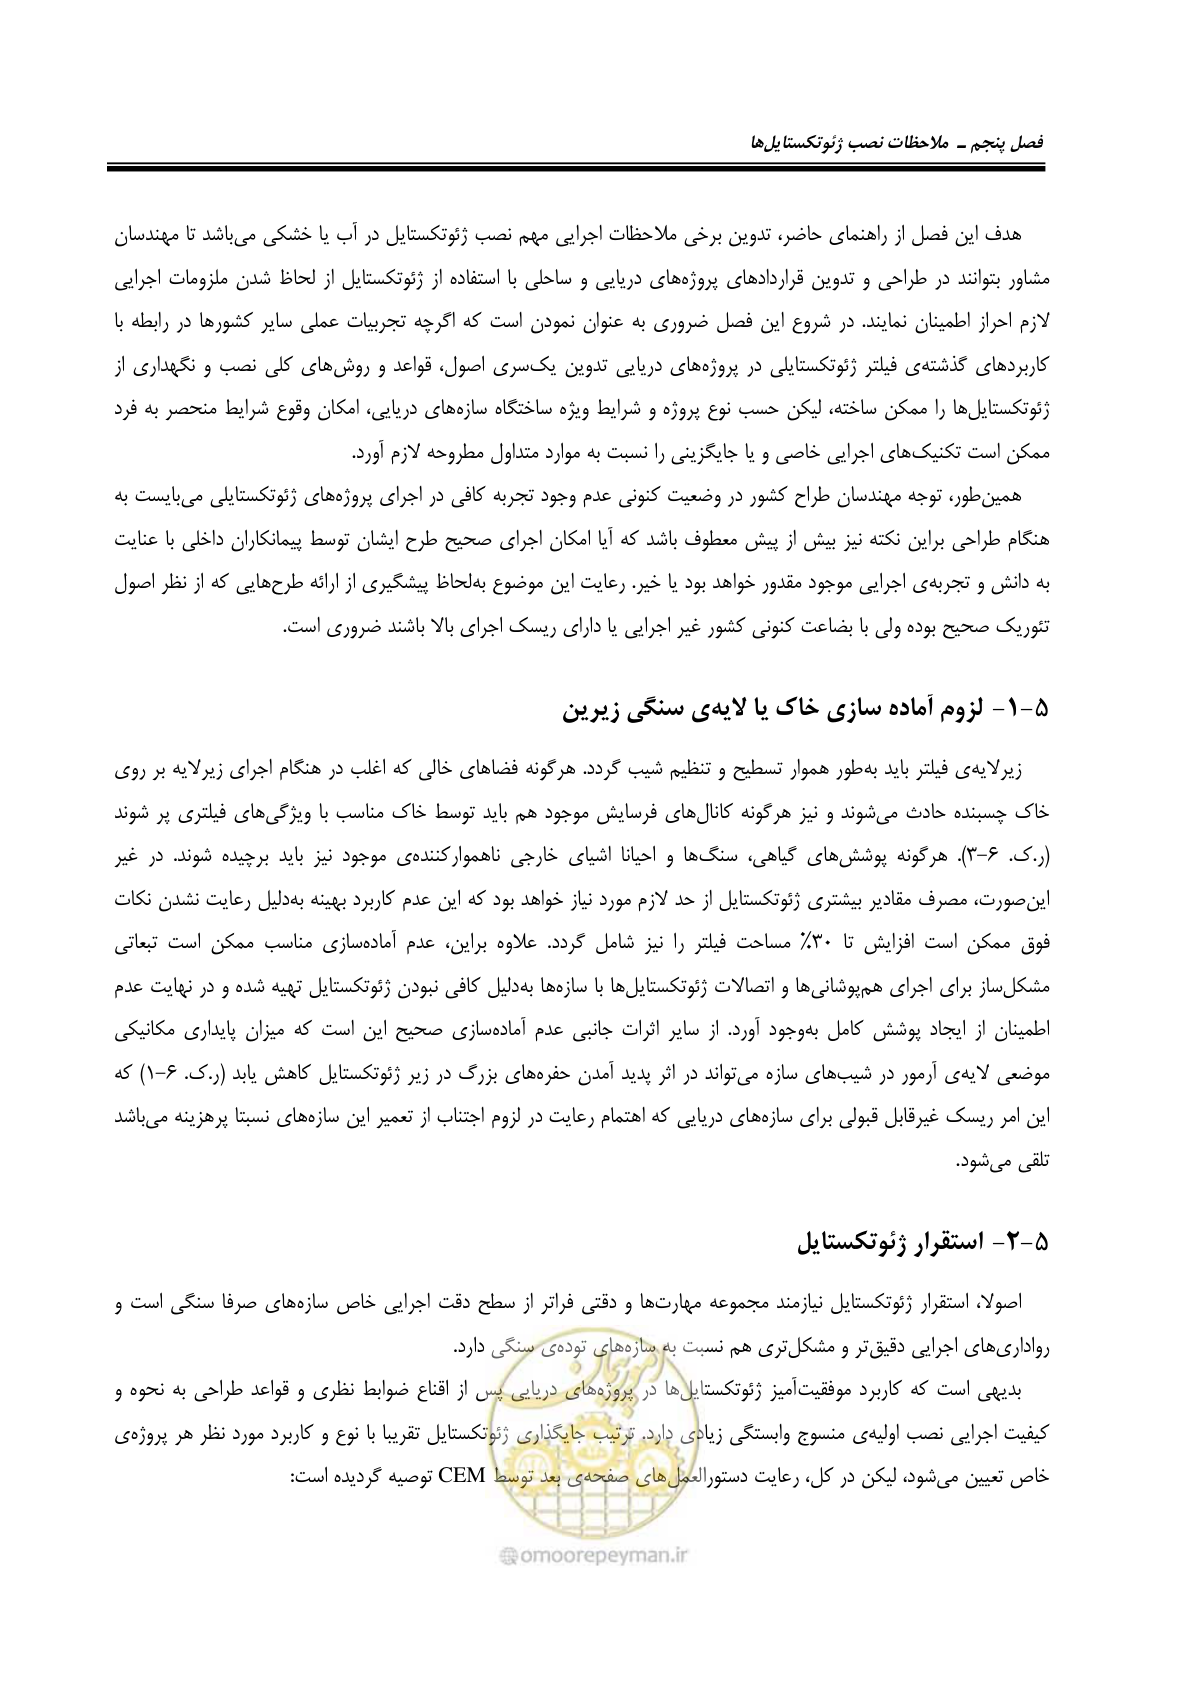 فصل پنجم – ملاحظات نصب ژئوتکستایل‌ها
هدف این فصل از راهنمای حاضر، تدوین برخی ملاحظات اجرایی مهم نصب ژئوتکستایل در آب یا خشکی می‌باشد تا مهندسان
مشاور بتوانند در طراحی و تدوین قراردادهای پروژه‌های دریایی و ساحلی با استفاده از ژئوتکستایل از لحاظ شدن ملزومات اجرایی
لازم احراز اطمینان نمایند. در شروع این فصل ضروری به عنوان نمودن است که اگرچه تجربیات عملی سایر کشورها در رابطه با
کاربردهای گذشته‌ی فیلتر ژئوتکستایلی در پروژه‌های دریایی تدوین یک‌سری اصول، قواعد و روش‌های کلی نصب و نگهداری از
ژئوتکستایل‌ها را ممکن ساخته، لیکن حسب نوع پروژه و شرایط ویژه ساختگاه سازه‌های دریایی، امکان وقوع شرایط منحصر به فرد
ممکن است تکنیک‌های اجرایی خاصی و یا جایگزینی را نسبت به موارد متداول مطروحه لازم آورد.
همین‌طور، توجه مهندسان طراح کشور در وضعیت کنونی عدم وجود تجربه کافی در اجرای پروژه‌های ژئوتکستایلی می‌بایست به
هنگام طراحی براین نکته نیز بیش از پیش معطوف باشد که آیا امکان اجرای صحیح طرح ایشان توسط پیمانکاران داخلی با عنایت
به دانش و تجربه‌ی اجرایی موجود مقدور خواهد بود یا خیر. رعایت این موضوع به‌لحاظ پیشگیری از ارائه طرح‌هایی که از نظر اصول
تئوریک صحیح بوده ولی با بضاعت کنونی کشور غیر اجرایی یا دارای ریسک اجرای بالا باشند ضروری است.
۵-۱- لزوم آماده سازی خاک یا لایه‌ی سنگی زیرین
زیرلایه‌ی فیلتر باید به‌طور هموار تسطیح و تنظیم شیب گردد. هرگونه فضاهای خالی که اغلب در هنگام اجرای زیرلایه بر روی
خاک چسبنده حادث می‌شوند و نیز هرگونه کانال‌های فرسایش موجود هم باید توسط خاک مناسب با ویژگی‌های فیلتری پر شوند
(ر.ک. ۶-۳). هرگونه پوشش‌های گیاهی، سنگ‌ها و احیانا اشیای خارجی ناهموارکننده‌ی موجود نیز باید برچیده شوند. در غیر
این‌صورت، مصرف مقادیر بیشتری ژئوتکستایل از حد لازم مورد نیاز خواهد بود که این عدم کاربرد بهینه به‌دلیل رعایت نشدن نکات
فوق ممکن است افزایش تا ۳۰٪ مساحت فیلتر را نیز شامل گردد. علاوه براین، عدم آماده‌سازی مناسب ممکن است تبعاتی
مشکل‌ساز برای اجرای هم‌پوشانی‌ها و اتصالات ژئوتکستایل‌ها با سازه‌ها به‌دلیل کافی نبودن ژئوتکستایل تهیه شده و در نهایت عدم
اطمینان از ایجاد پوشش کامل به‌وجود آورد. از سایر اثرات جانبی عدم آماده‌سازی صحیح این است که میزان پایداری مکانیکی
موضعی لایه‌ی آرمور در شیب‌های سازه می‌تواند در اثر پدید آمدن حفره‌های بزرگ در زیر ژئوتکستایل کاهش یابد (ر.ک. ۶-۱) که
این امر ریسک غیرقابل قبولی برای سازه‌های دریایی که اهتمام رعایت در لزوم اجتناب از تعمیر این سازه‌های نسبتا پرهزینه می‌باشد
تلقی می‌شود.
۵-۲- استقرار ژئوتکستایل
اصولا، استقرار ژئوتکستایل نیازمند مجموعه مهارت‌ها و دقتی فراتر از سطح دقت اجرایی خاص سازه‌های صرفا سنگی است و
رواداری‌های اجرایی دقیق‌تر و مشکل‌تری هم نسبت به سازه‌های توده‌ی سنگی دارد.
بدیهی است که کاربرد موفقیت‌آمیز ژئوتکستایل‌ها در پروژه‌های دریایی پس از اقناع ضوابط نظری و قواعد طراحی به نحوه و
کیفیت اجرایی نصب اولیه‌ی منسوج وابستگی زیادی دارد. ترتیب جایگذاری ژئوتکستایل تقریبا با نوع و کاربرد مورد نظر هر پروژه‌ی
خاص تعیین می‌شود، لیکن در کل، رعایت دستورالعمل‌های صفحه‌ی بعد توسط CEM توصیه گردیده است:
امور پیمان
@omoorepeyman.ir